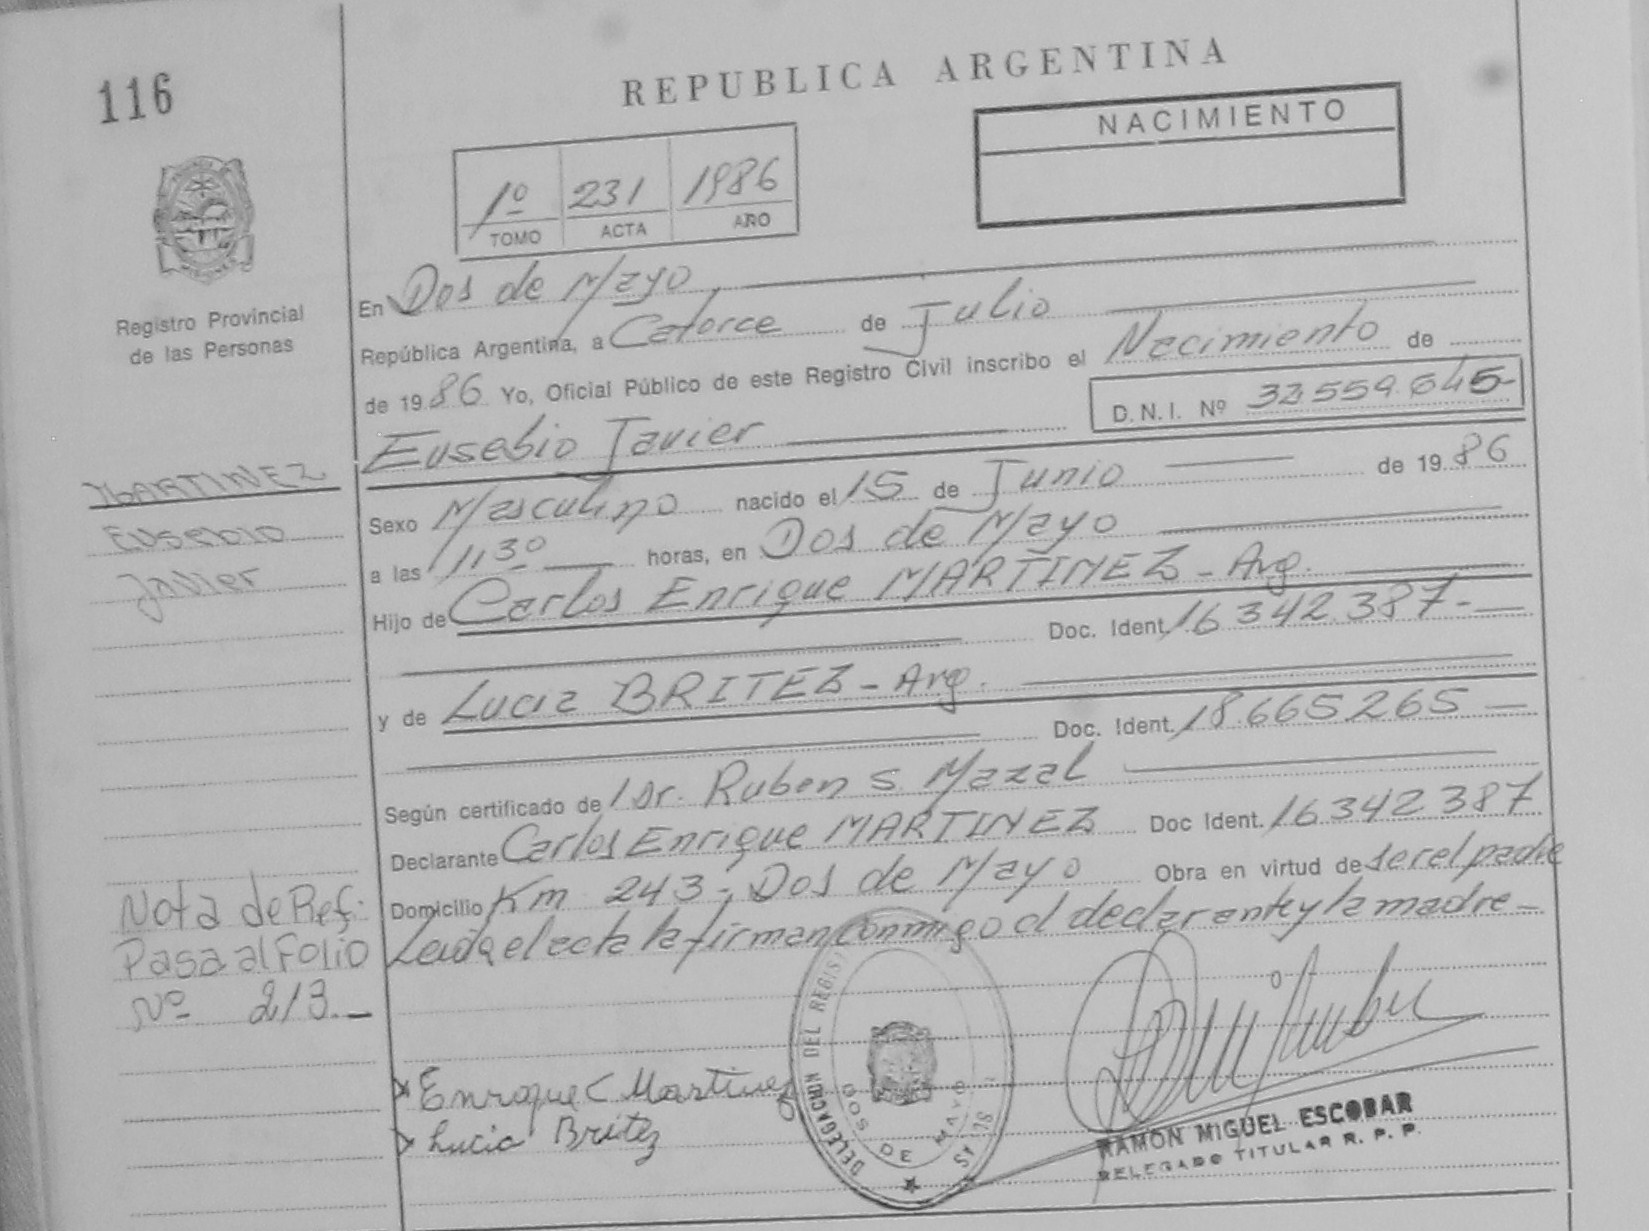 116
REPUBLICA ARGENTINA
NACIMIENTO
1º 231 1986
TOMO ACTA AÑO
Registro Provincial
de las Personas
En Dos de Mayo
República Argentina, a Catorce de Julio
de 1986 Yo, Oficial Público de este Registro Civil inscribo el Nacimiento de
D.N.I. Nº
Eusebio Javier
MARTINEZ
Eusebio
Javier
Sexo Masculino nacido el 15 de Junio de 1986
a las 1130 horas, en Dos de Mayo
Hijo de Carlos Enrique MARTINEZ - Arg.
Doc. Ident. 16342.387-
y de Lucia BRITEZ - Arg.
Doc. Ident. 18.665265
Según certificado de Dr. Ruben S. Mazal
Declarante Carlos Enrique MARTINEZ Doc Ident. 16342387
Domicilio Km 243 - Dos de Mayo Obra en virtud de ser el padre
Leida el acta la firman conmigo el declarante y la madre -
Nota de Ref:
Pasa al Folio
Nº 213.-
Enrique C Martinez
Lucia Britez
DELEGACION DEL REGIS
DOS DE MAYO
RAMON MIGUEL ESCOBAR
DELEGADO TITULAR R. P. P.